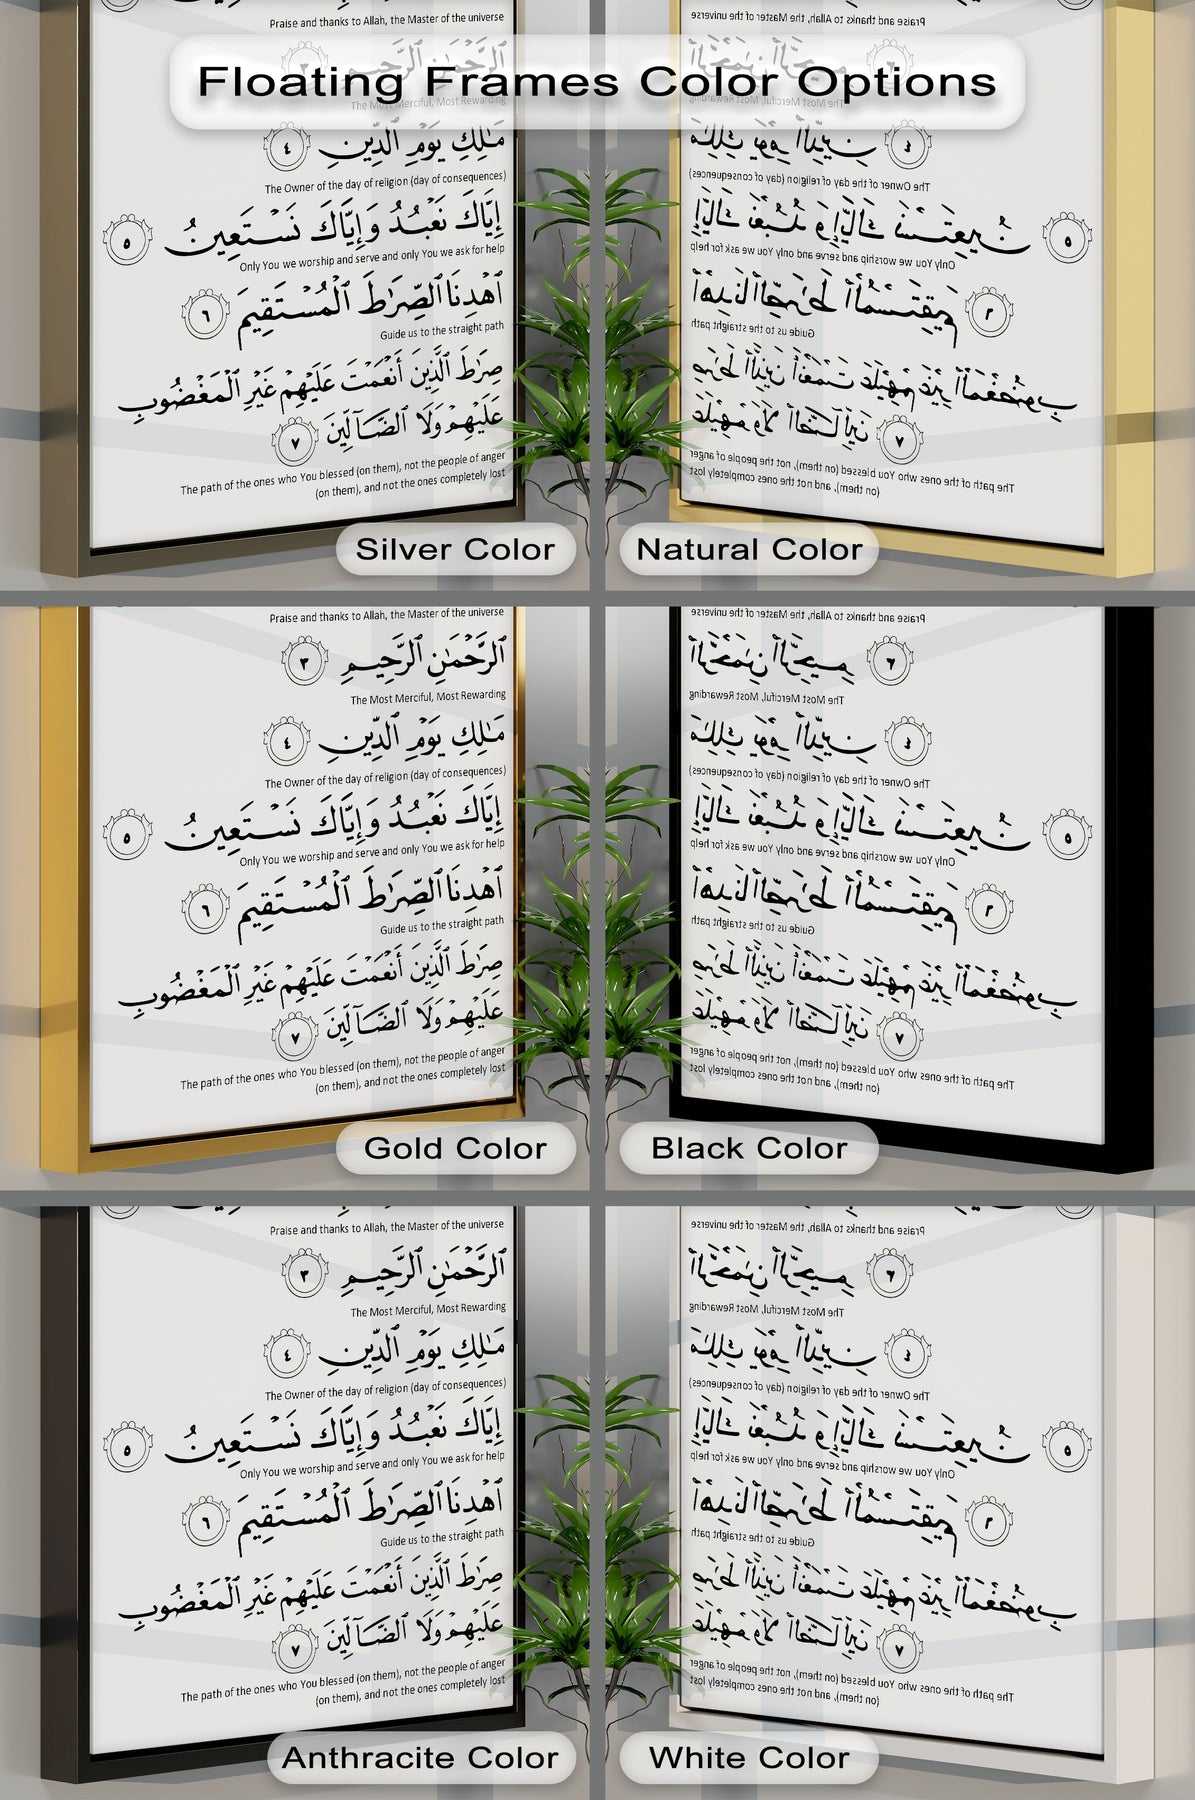 Floating Frames Color Options
Praise and thanks to Allah, the Master of the universe
ٱلرَّحْمَٰنِ ٱلرَّحِيمِ ٣
The Most Merciful, Most Rewarding
مَٰلِكِ يَوْمِ ٱلدِّينِ ٤
The Owner of the day of religion (day of consequences)
إِيَّاكَ نَعْبُدُ وَإِيَّاكَ نَسْتَعِينُ ٥
Only You we worship and serve and only You we ask for help
ٱهْدِنَا ٱلصِّرَٰطَ ٱلْمُسْتَقِيمَ ٦
Guide us to the straight path
صِرَٰطَ ٱلَّذِينَ أَنْعَمْتَ عَلَيْهِمْ غَيْرِ ٱلْمَغْضُوبِ
عَلَيْهِمْ وَلَا ٱلضَّآلِّينَ ٧
The path of the ones who You blessed (on them), not the people of anger
(on them), and not the ones completely lost
Silver Color
Praise and thanks to Allah, the Master of the universe
ٱلرَّحْمَٰنِ ٱلرَّحِيمِ ٣
The Most Merciful, Most Rewarding
مَٰلِكِ يَوْمِ ٱلدِّينِ ٤
The Owner of the day of religion (day of consequences)
إِيَّاكَ نَعْبُدُ وَإِيَّاكَ نَسْتَعِينُ ٥
Only You we worship and serve and only You we ask for help
ٱهْدِنَا ٱلصِّرَٰطَ ٱلْمُسْتَقِيمَ ٦
Guide us to the straight path
صِرَٰطَ ٱلَّذِينَ أَنْعَمْتَ عَلَيْهِمْ غَيْرِ ٱلْمَغْضُوبِ
عَلَيْهِمْ وَلَا ٱلضَّآلِّينَ ٧
The path of the ones who You blessed (on them), not the people of anger
(on them), and not the ones completely lost
Natural Color
Praise and thanks to Allah, the Master of the universe
ٱلرَّحْمَٰنِ ٱلرَّحِيمِ ٣
The Most Merciful, Most Rewarding
مَٰلِكِ يَوْمِ ٱلدِّينِ ٤
The Owner of the day of religion (day of consequences)
إِيَّاكَ نَعْبُدُ وَإِيَّاكَ نَسْتَعِينُ ٥
Only You we worship and serve and only You we ask for help
ٱهْدِنَا ٱلصِّرَٰطَ ٱلْمُسْتَقِيمَ ٦
Guide us to the straight path
صِرَٰطَ ٱلَّذِينَ أَنْعَمْتَ عَلَيْهِمْ غَيْرِ ٱلْمَغْضُوبِ
عَلَيْهِمْ وَلَا ٱلضَّآلِّينَ ٧
The path of the ones who You blessed (on them), not the people of anger
(on them), and not the ones completely lost
Gold Color
Praise and thanks to Allah, the Master of the universe
ٱلرَّحْمَٰنِ ٱلرَّحِيمِ ٣
The Most Merciful, Most Rewarding
مَٰلِكِ يَوْمِ ٱلدِّينِ ٤
The Owner of the day of religion (day of consequences)
إِيَّاكَ نَعْبُدُ وَإِيَّاكَ نَسْتَعِينُ ٥
Only You we worship and serve and only You we ask for help
ٱهْدِنَا ٱلصِّرَٰطَ ٱلْمُسْتَقِيمَ ٦
Guide us to the straight path
صِرَٰطَ ٱلَّذِينَ أَنْعَمْتَ عَلَيْهِمْ غَيْرِ ٱلْمَغْضُوبِ
عَلَيْهِمْ وَلَا ٱلضَّآلِّينَ ٧
The path of the ones who You blessed (on them), not the people of anger
(on them), and not the ones completely lost
Black Color
Praise and thanks to Allah, the Master of the universe
ٱلرَّحْمَٰنِ ٱلرَّحِيمِ ٣
The Most Merciful, Most Rewarding
مَٰلِكِ يَوْمِ ٱلدِّينِ ٤
The Owner of the day of religion (day of consequences)
إِيَّاكَ نَعْبُدُ وَإِيَّاكَ نَسْتَعِينُ ٥
Only You we worship and serve and only You we ask for help
ٱهْدِنَا ٱلصِّرَٰطَ ٱلْمُسْتَقِيمَ ٦
Guide us to the straight path
صِرَٰطَ ٱلَّذِينَ أَنْعَمْتَ عَلَيْهِمْ غَيْرِ ٱلْمَغْضُوبِ
عَلَيْهِمْ وَلَا ٱلضَّآلِّينَ ٧
The path of the ones who You blessed (on them), not the people of anger
(on them), and not the ones completely lost
Anthracite Color
Praise and thanks to Allah, the Master of the universe
ٱلرَّحْمَٰنِ ٱلرَّحِيمِ ٣
The Most Merciful, Most Rewarding
مَٰلِكِ يَوْمِ ٱلدِّينِ ٤
The Owner of the day of religion (day of consequences)
إِيَّاكَ نَعْبُدُ وَإِيَّاكَ نَسْتَعِينُ ٥
Only You we worship and serve and only You we ask for help
ٱهْدِنَا ٱلصِّرَٰطَ ٱلْمُسْتَقِيمَ ٦
Guide us to the straight path
صِرَٰطَ ٱلَّذِينَ أَنْعَمْتَ عَلَيْهِمْ غَيْرِ ٱلْمَغْضُوبِ
عَلَيْهِمْ وَلَا ٱلضَّآلِّينَ ٧
The path of the ones who You blessed (on them), not the people of anger
(on them), and not the ones completely lost
White Color